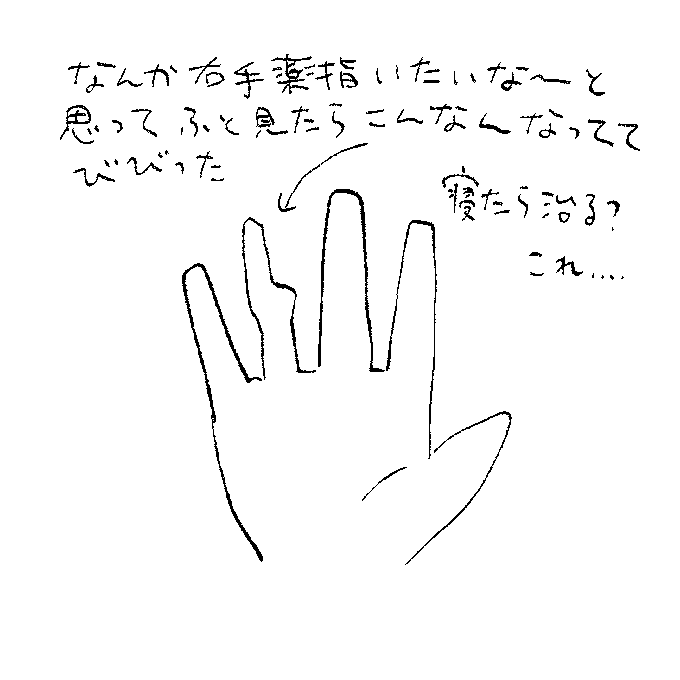 なんか右手薬指いたいな〜と
思ってふと見たらこんなんなってて
びびった
寝たら治る?
これ....